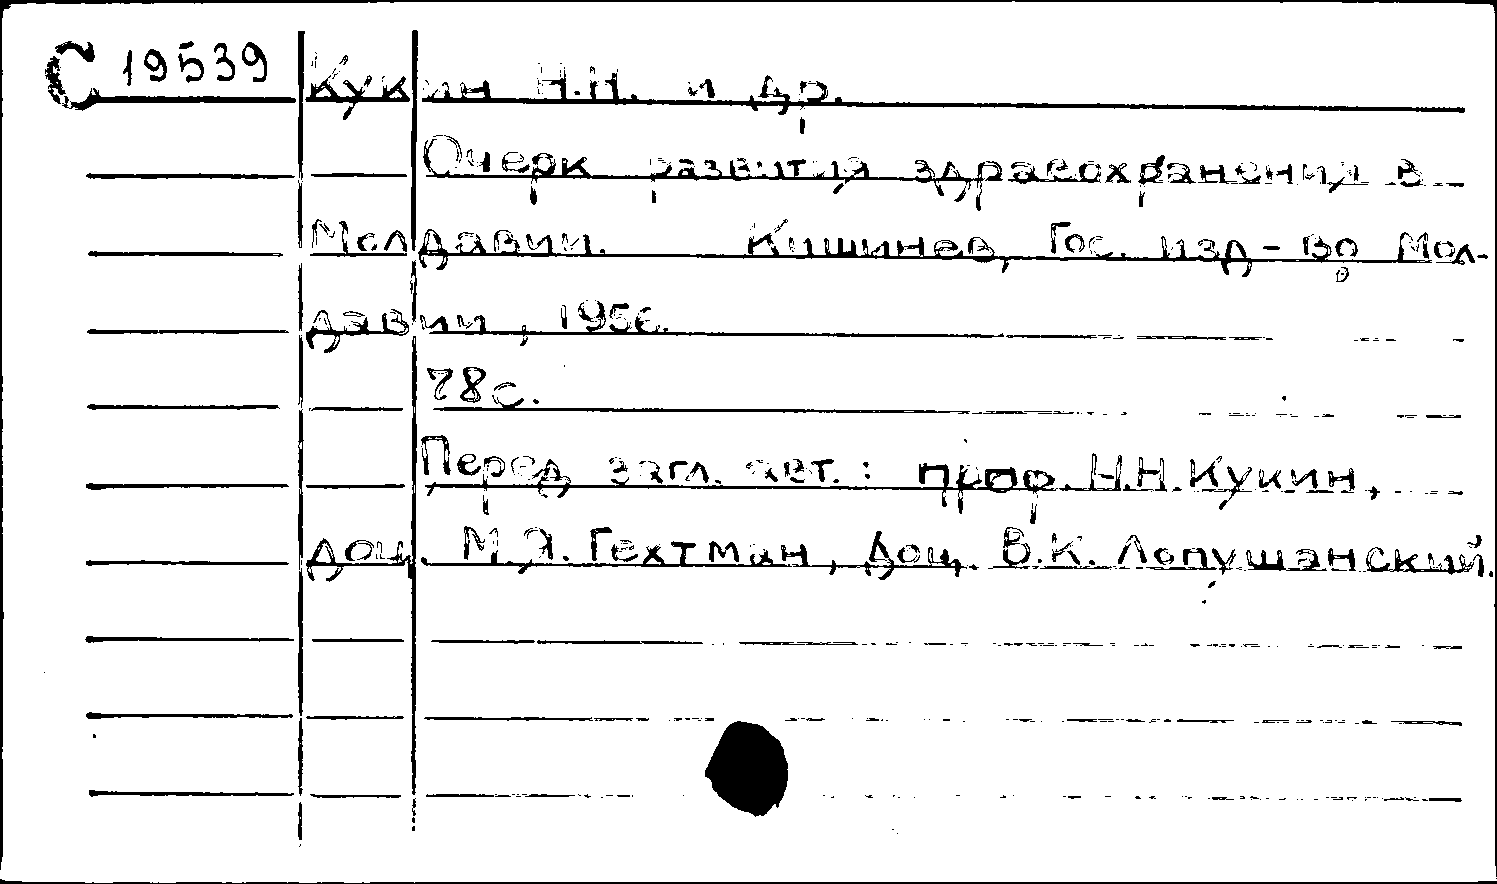 С 19539 Кукин Н.Н. и др.
Очерк развития здравохранения в
Молдавии. Кишинев, Гос. изд-во Мол-
давии, 1956.
78с.
Перед загл. авт.: проф. Н.Н.Кукин,
доц. М.Я. Гехтман, доц. В.К. Лопушанский.